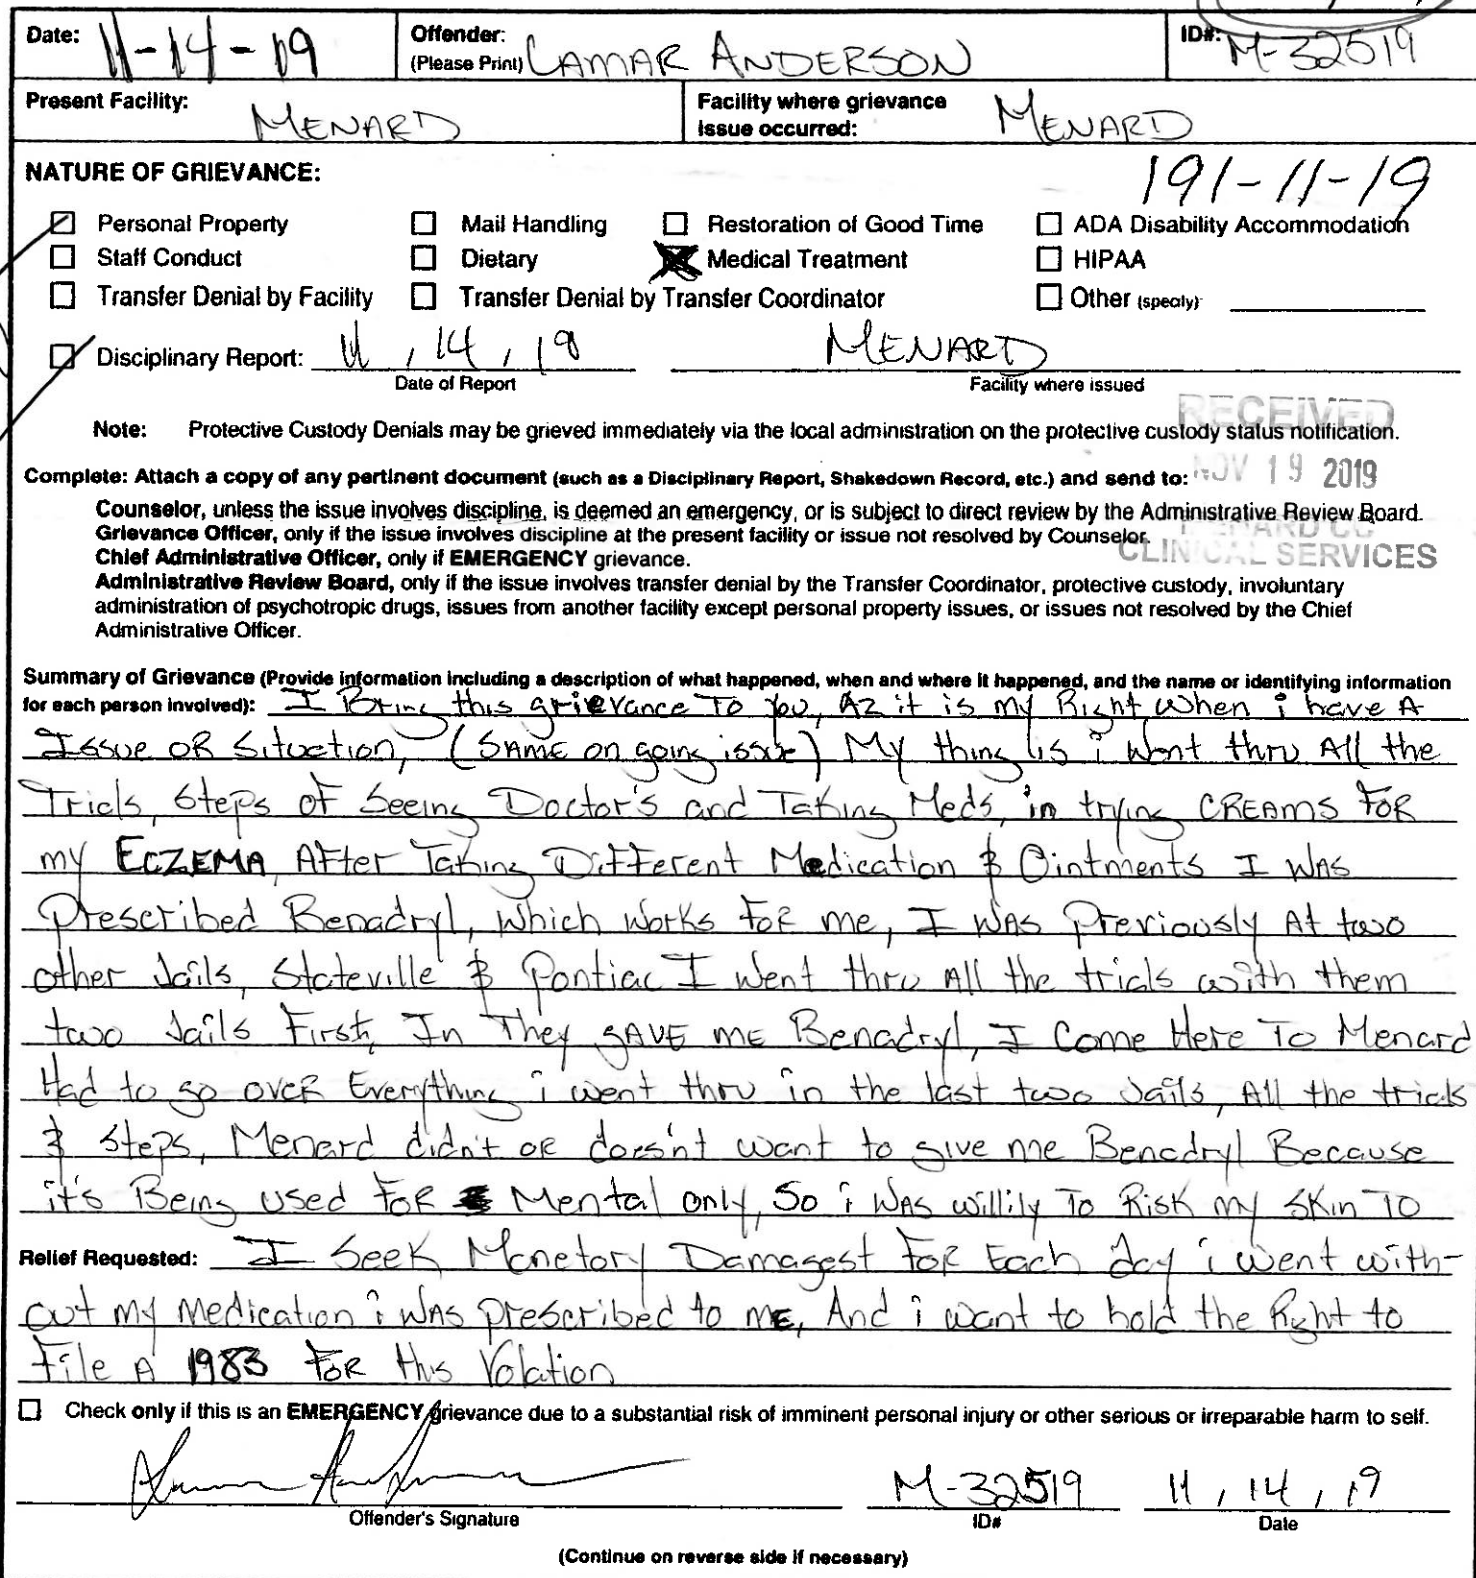 Date: 11-14-19 Offender: (Please Print) LAMAR ANDERSON ID#: M-32519
Present Facility: MENARD Facility where grievance issue occurred: MENARD
NATURE OF GRIEVANCE: 191-11-19
Personal Property Mail Handling Restoration of Good Time ADA Disability Accommodation
Staff Conduct Dietary Medical Treatment HIPAA
Transfer Denial by Facility Transfer Denial by Transfer Coordinator Other (specify):
Disciplinary Report: 11 / 14 / 19 MENARD
Date of Report Facility where issued
RECEIVED
Note: Protective Custody Denials may be grieved immediately via the local administration on the protective custody status notification.
Complete: Attach a copy of any pertinent document (such as a Disciplinary Report, Shakedown Record, etc.) and send to: NOV 19 2019
Counselor, unless the issue involves discipline, is deemed an emergency, or is subject to direct review by the Administrative Review Board.
Grievance Officer, only if the issue involves discipline at the present facility or issue not resolved by Counselor. MENARD CC
Chief Administrative Officer, only if EMERGENCY grievance. CLINICAL SERVICES
Administrative Review Board, only if the issue involves transfer denial by the Transfer Coordinator, protective custody, involuntary
administration of psychotropic drugs, issues from another facility except personal property issues, or issues not resolved by the Chief
Administrative Officer.
Summary of Grievance (Provide information including a description of what happened, when and where it happened, and the name or identifying information
for each person involved): I Bring this grievance To you, Az it is my Right When i have A
Issue OR Situation, (SAME on going issue) My thing is i Went thru All the
Trials, Steps of Seeing Doctor's and Taking Meds, in trying CREAMS FOR
my ECZEMA, AFter Taking Different Medication & Ointments I WAS
Prescribed Benadryl, Which Works FOR me, I WAS Previously At two
other Jails, Stateville & Pontiac I Went thru All the trials with them
two Jails First, In They GAVE ME Benadryl, I Come Here To Menard
Had to go OVER Everything i went thru in the last two Jails, All the trials
& Steps, Menard didn't OR doesn't want to give me Benadryl Because
it's Being used FOR Mental only, So i WAS willily To Risk my Skin TO
Relief Requested: I Seek Monetory Damagest FOR Each day i went with-
out my medication i WAS prescribed to ME, And i want to hold the Right to
File A 1983 FOR this Volation
Check only if this is an EMERGENCY grievance due to a substantial risk of imminent personal injury or other serious or irreparable harm to self.
M-32519 11 / 14 / 19
Offender's Signature ID# Date
(Continue on reverse side if necessary)